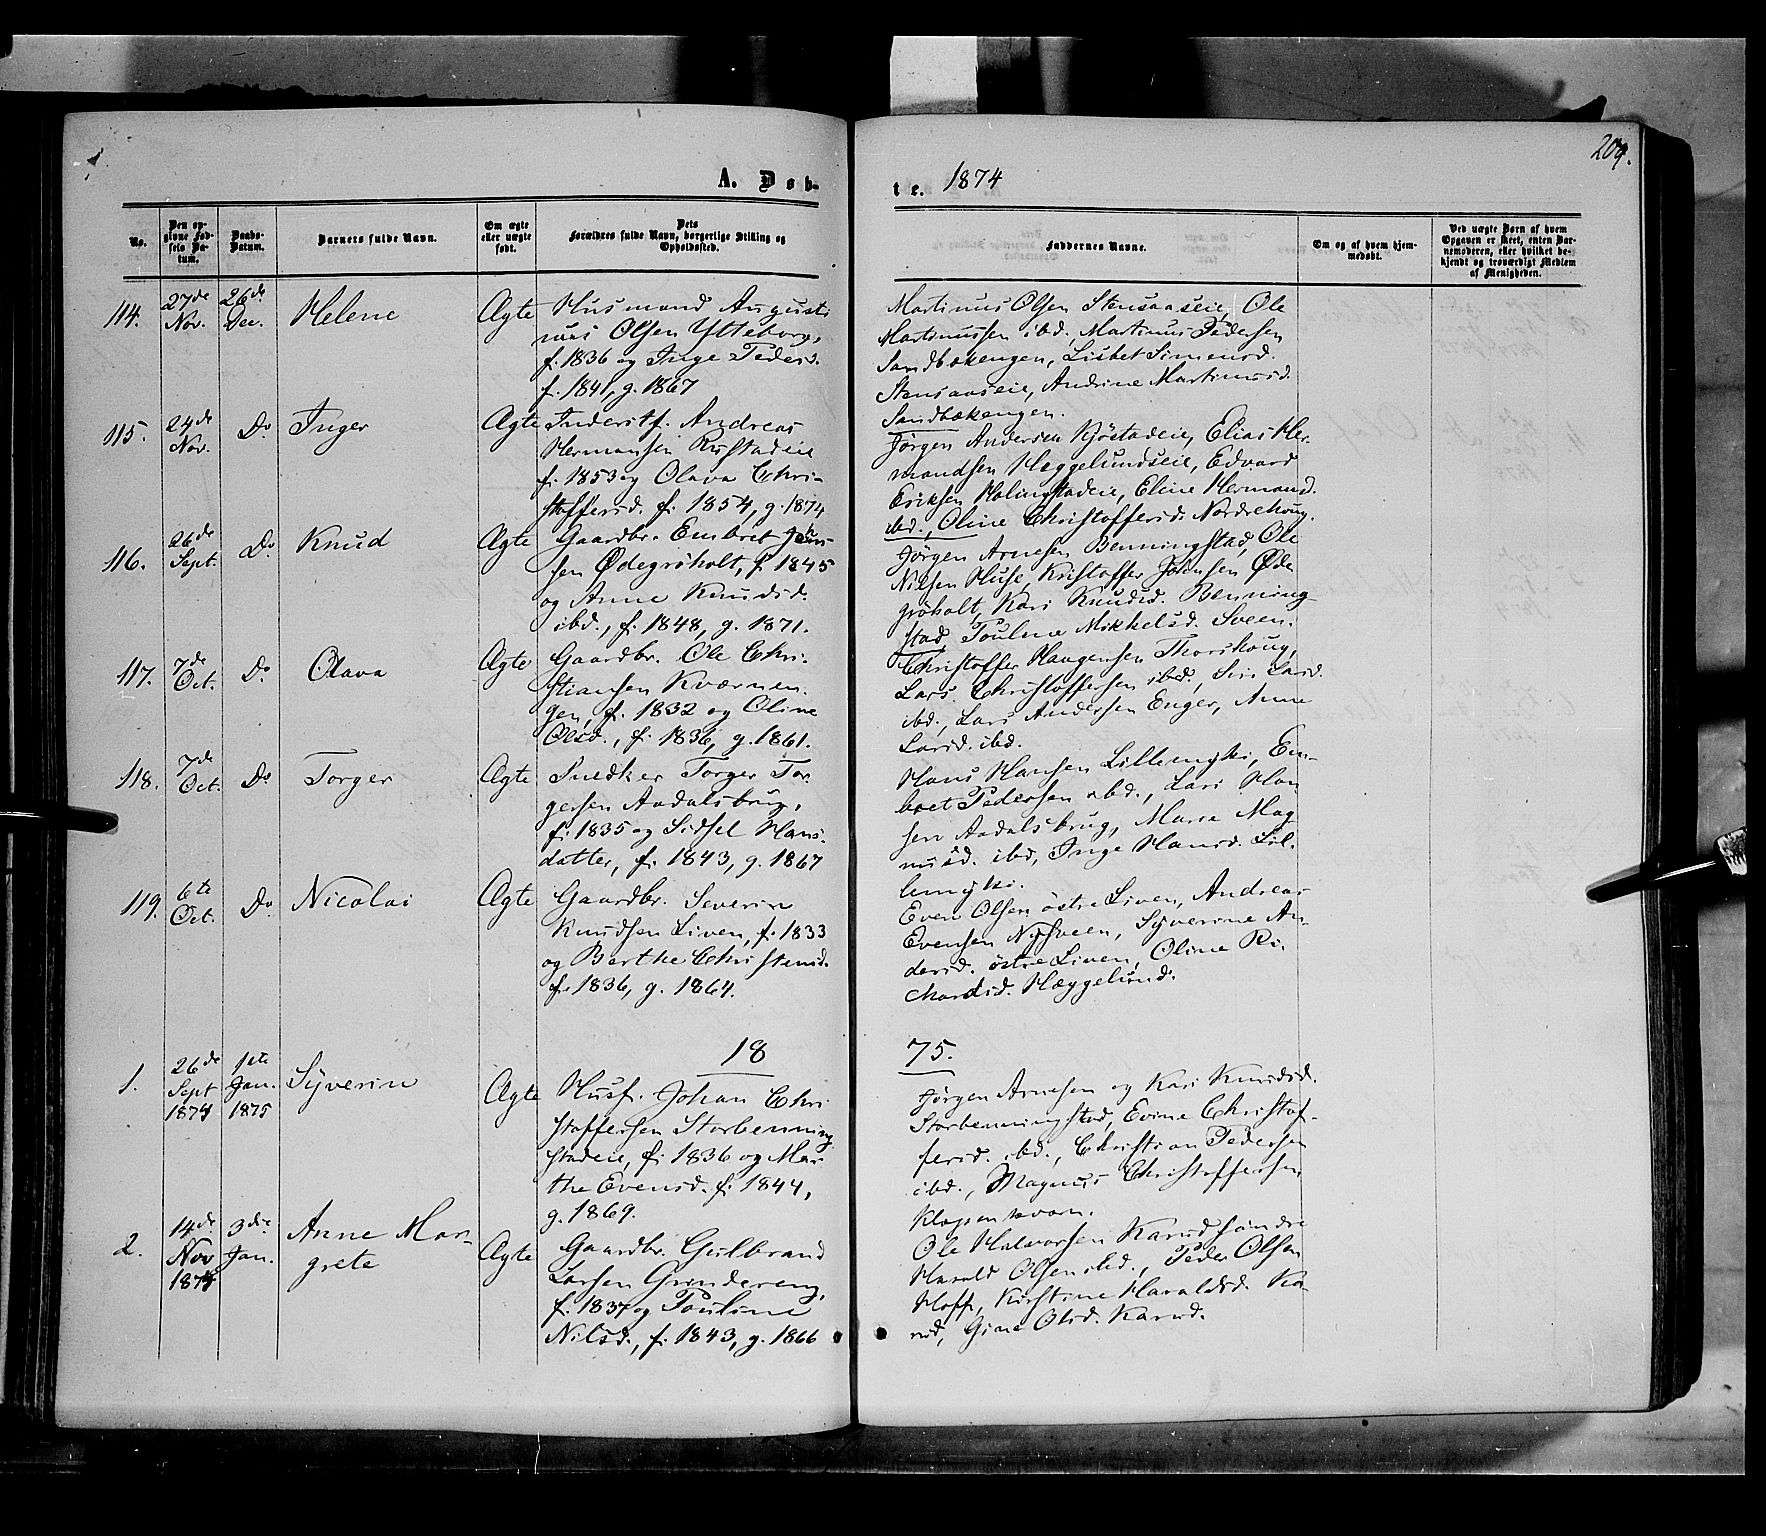 209.
A. Døb-
te. 1874
No.
Den op-
givne Fød-
sels Da-
tum.
Daabs-
Datum.
Barnets fulde Navn.
Om ægte
eller uægte
født.
Dets
Forældres fulde Navn, borgerlige Stilling og
Opholdssted.
Faddernes Navne.
Om og af hvem hjem-
medøbt.
Ved uægte Børn af hvem
Opgaven er skeet, enten Bar-
nemoderen, eller hvilket be-
kjendt og troværdigt Medlem
af Menigheden.
114.
27de
Nov.
26de
Dec.
Helene
Ægte
Husmand Augusti
nus Olsen Ytteborg,
f. 1836 og Inge Pedersd.
f. 1841, g. 1867
Martinus Olsen Stensaaseie, Ole
Martinussen ibd., Martinus Pedersen
Sandbækengen, Lisbet Simensd.
Stensaaseie, Andrine Martinusd.
Sandbækengen.
115.
24de
Nov.
Do
Inger
Ægte
Inderstf. Andreas
Hermansen Rustadeie
f. 1853 og Olava Chri-
stoffersd. f. 1854, g. 1874
Jørgen Andersen Kjöstadeie, Elias Her-
mandsen Hæggelundseie, Edvard
Eriksen Holingstadeie, Eline Hermansd.
ibd., Oline Christoffersd. Nordrehoug.
116.
26de
Sept.
Do
Knud
Ægte
Gaardbr. Embret Johan-
sen Ødegröholt, f. 1845
og Anne Knudsd.
ibd., f. 1848, g. 1871.
Jørgen Arnesen Benningstad, Ole
Nilsen Huse, Kristoffer Johnsen Øde
gröholt, Kari Knudsd. Benning-
stad, Pouline Mikkelsd. Sveen.
117.
7de
Oct.
Do
Olava
Ægte
Gaardbr. Ole Chri-
stiansen Kværnen-
gen, f. 1832 og Oline
Olsd., f. 1836, g. 1861.
Christoffer Haagensen Thorshoug,
Lars Christoffersen ibd., Siri Larsd.
ibd., Lars Andersen Enger, Anne
Larsd. ibd.
118.
7de
Oct.
Do
Torger
Ægte
Snedker Torger Tor-
gersen Aadalsbrug,
f. 1835 og Sidsel Hans
datter, f. 1843, g. 1867
Hans Hansen Lillemyhr, Em-
bret Pedersen ibd., Lars Han
sen Aadalsbrug, Maria Mag
nusd. ibd, Inge Hansd. Lil-
lemyhr.
119.
6te
Oct.
Do
Nicolai
Ægte
Gaardbr. Severin
Knudsen Liven, f. 1833
og Berthe Christensd.
f. 1836, g. 1864.
Even Olsen östre Liven, Andreas
Evensen Nysveen, Syverine An-
dersd. östre Liven, Oline Ri-
chardsd. Hæggelund.
18
75.
1.
26de
Sept
1874
1ste
Jan.
1875
Syverin
Ægte
Husf. Johan Chri
stoffersen Storbenning
stadeie, f. 1836 og Mar
the Evensd. f. 1844,
g. 1869.
Jørgen Arnesen og Kari Knudsd.
Storbenningstad, Evine Christof-
fersd. ibd., Christian Pedersen
ibd., Magnus Christoffersen
Klapenkværn.
2.
14de
Nov
1874
3die
Jan.
Anne Mar-
grete
Ægte
Gaardbr. Gulbrand
Larsen Grindereng,
f. 1837 og Pouline
Nilsd., f. 1843, g. 1866
Ole Halvorsen Karud søndre
Harald Olsen ibd., Peder Olsen
Hoff, Kirstine Haraldsd. Ka-
rud, Gine Olsd. Karud.